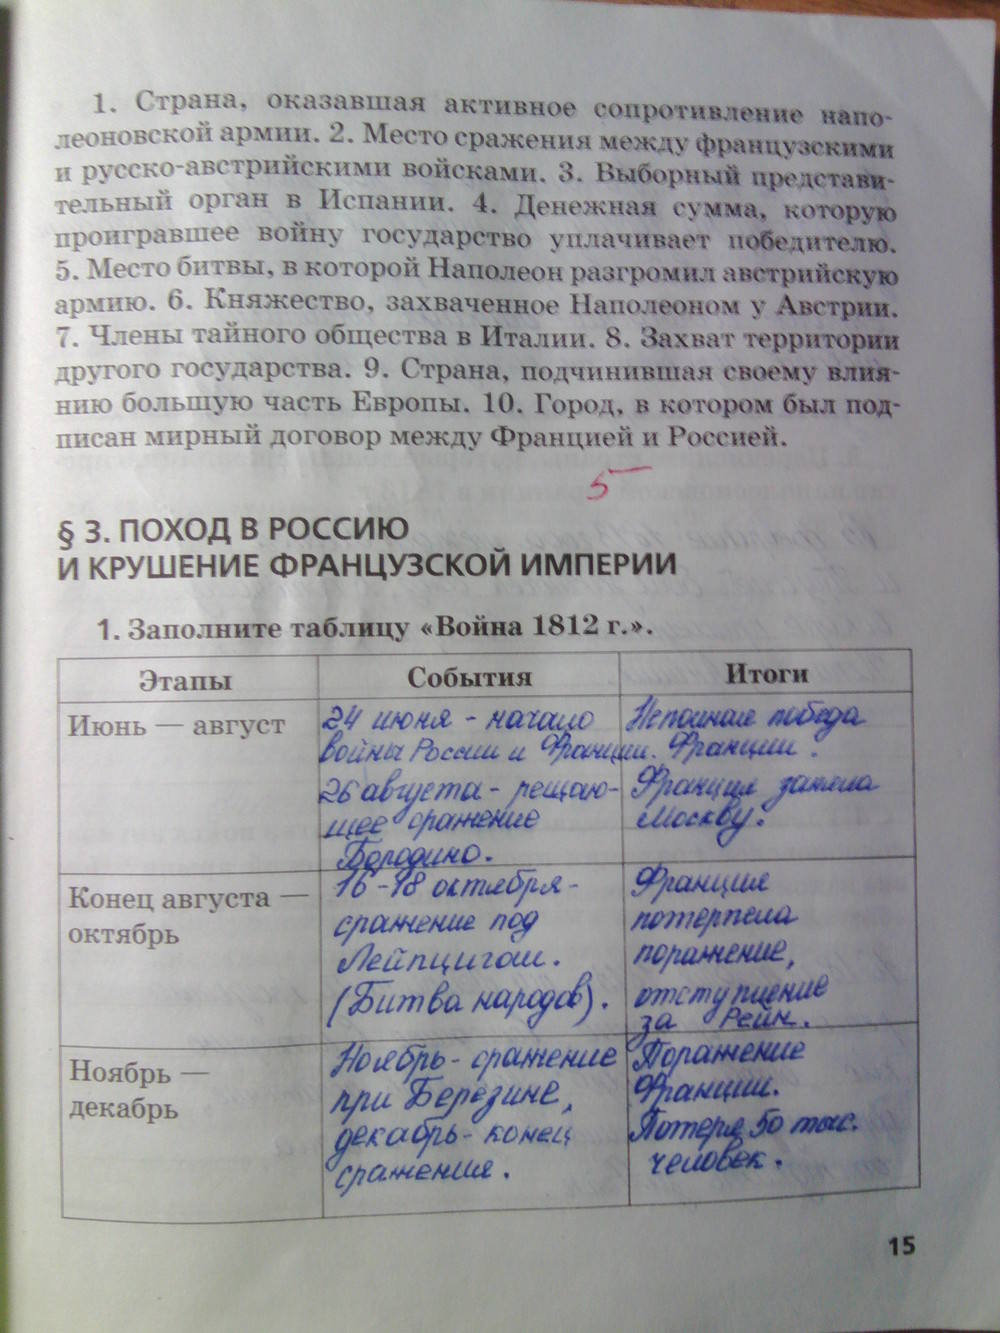 1. Страна, оказавшая активное сопротивление напо-
леоновской армии. 2. Место сражения между французскими
и русско-австрийскими войсками. 3. Выборный представи-
тельный орган в Испании. 4. Денежная сумма, которую
проигравшее войну государство уплачивает победителю.
5. Место битвы, в которой Наполеон разгромил австрийскую
армию. 6. Княжество, захваченное Наполеоном у Австрии.
7. Члены тайного общества в Италии. 8. Захват территории
другого государства. 9. Страна, подчинившая своему влия-
нию большую часть Европы. 10. Город, в котором был под-
писан мирный договор между Францией и Россией.
5
§ 3. ПОХОД В РОССИЮ
И КРУШЕНИЕ ФРАНЦУЗСКОЙ ИМПЕРИИ
1. Заполните таблицу «Война 1812 г.».
Этапы
События
Итоги
Июнь — август
24 июня - начало
войны России и Франции.
26 августа - решаю-
щее сражение
Бородино.
Неполная победа
Франции.
Франция заняла
Москву.
Конец августа —
октябрь
16-18 октября-
сражение под
Лейпцигом.
(Битва народов).
Франция
потерпела
поражение,
отступление
за Рейн.
Ноябрь —
декабрь
Ноябрь- сражение
при Березине,
декабрь- конец
сражения.
Поражение
Франции.
Потеря 50 тыс.
человек.
15